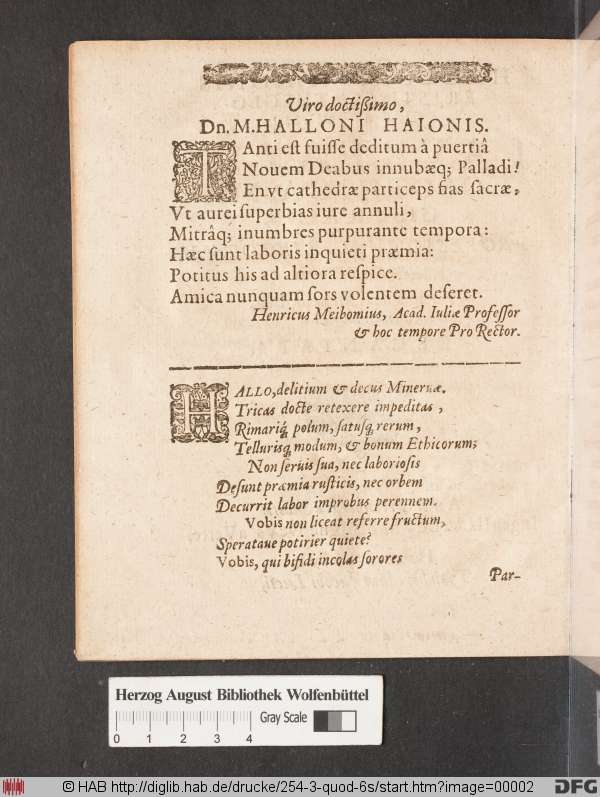 Viro doctißimo,
Dn. M. HALLONI HAIONIS.
TAnti est fuisse deditum à puertiâ
Nouem Deabus innubæq; Palladi!
En vt cathedræ particeps fias sacræ,
Vt aurei superbias iure annuli,
Mitrâq; inumbres purpurante tempora:
Hæc sunt laboris inquieti præmia:
Potitus his ad altiora respice.
Amica nunquam sors volentem deseret.
Henricus Meibomius, Acad. Iuliæ Professor
& hoc tempore Pro Rector.
HALLO, delitium & decus Mineruæ.
Tricas docte retexere impeditas,
Rimariq́; polum, satusq́; rerum,
Tellurisq́; modum, & bonum Ethicorum;
Non seruis sua, nec laboriosis
Desunt præmia rusticis, nec orbem
Decurrit labor improbus perennem.
Vobis non liceat referre fructum,
Sperataue potirier quiete?
Vobis, qui bifidi incolas sorores
Par-
Herzog August Bibliothek Wolfenbüttel
Gray Scale
0 1 2 3 4
© HAB http://diglib.hab.de/drucke/254-3-quod-6s/start.htm?image=00002
DFG